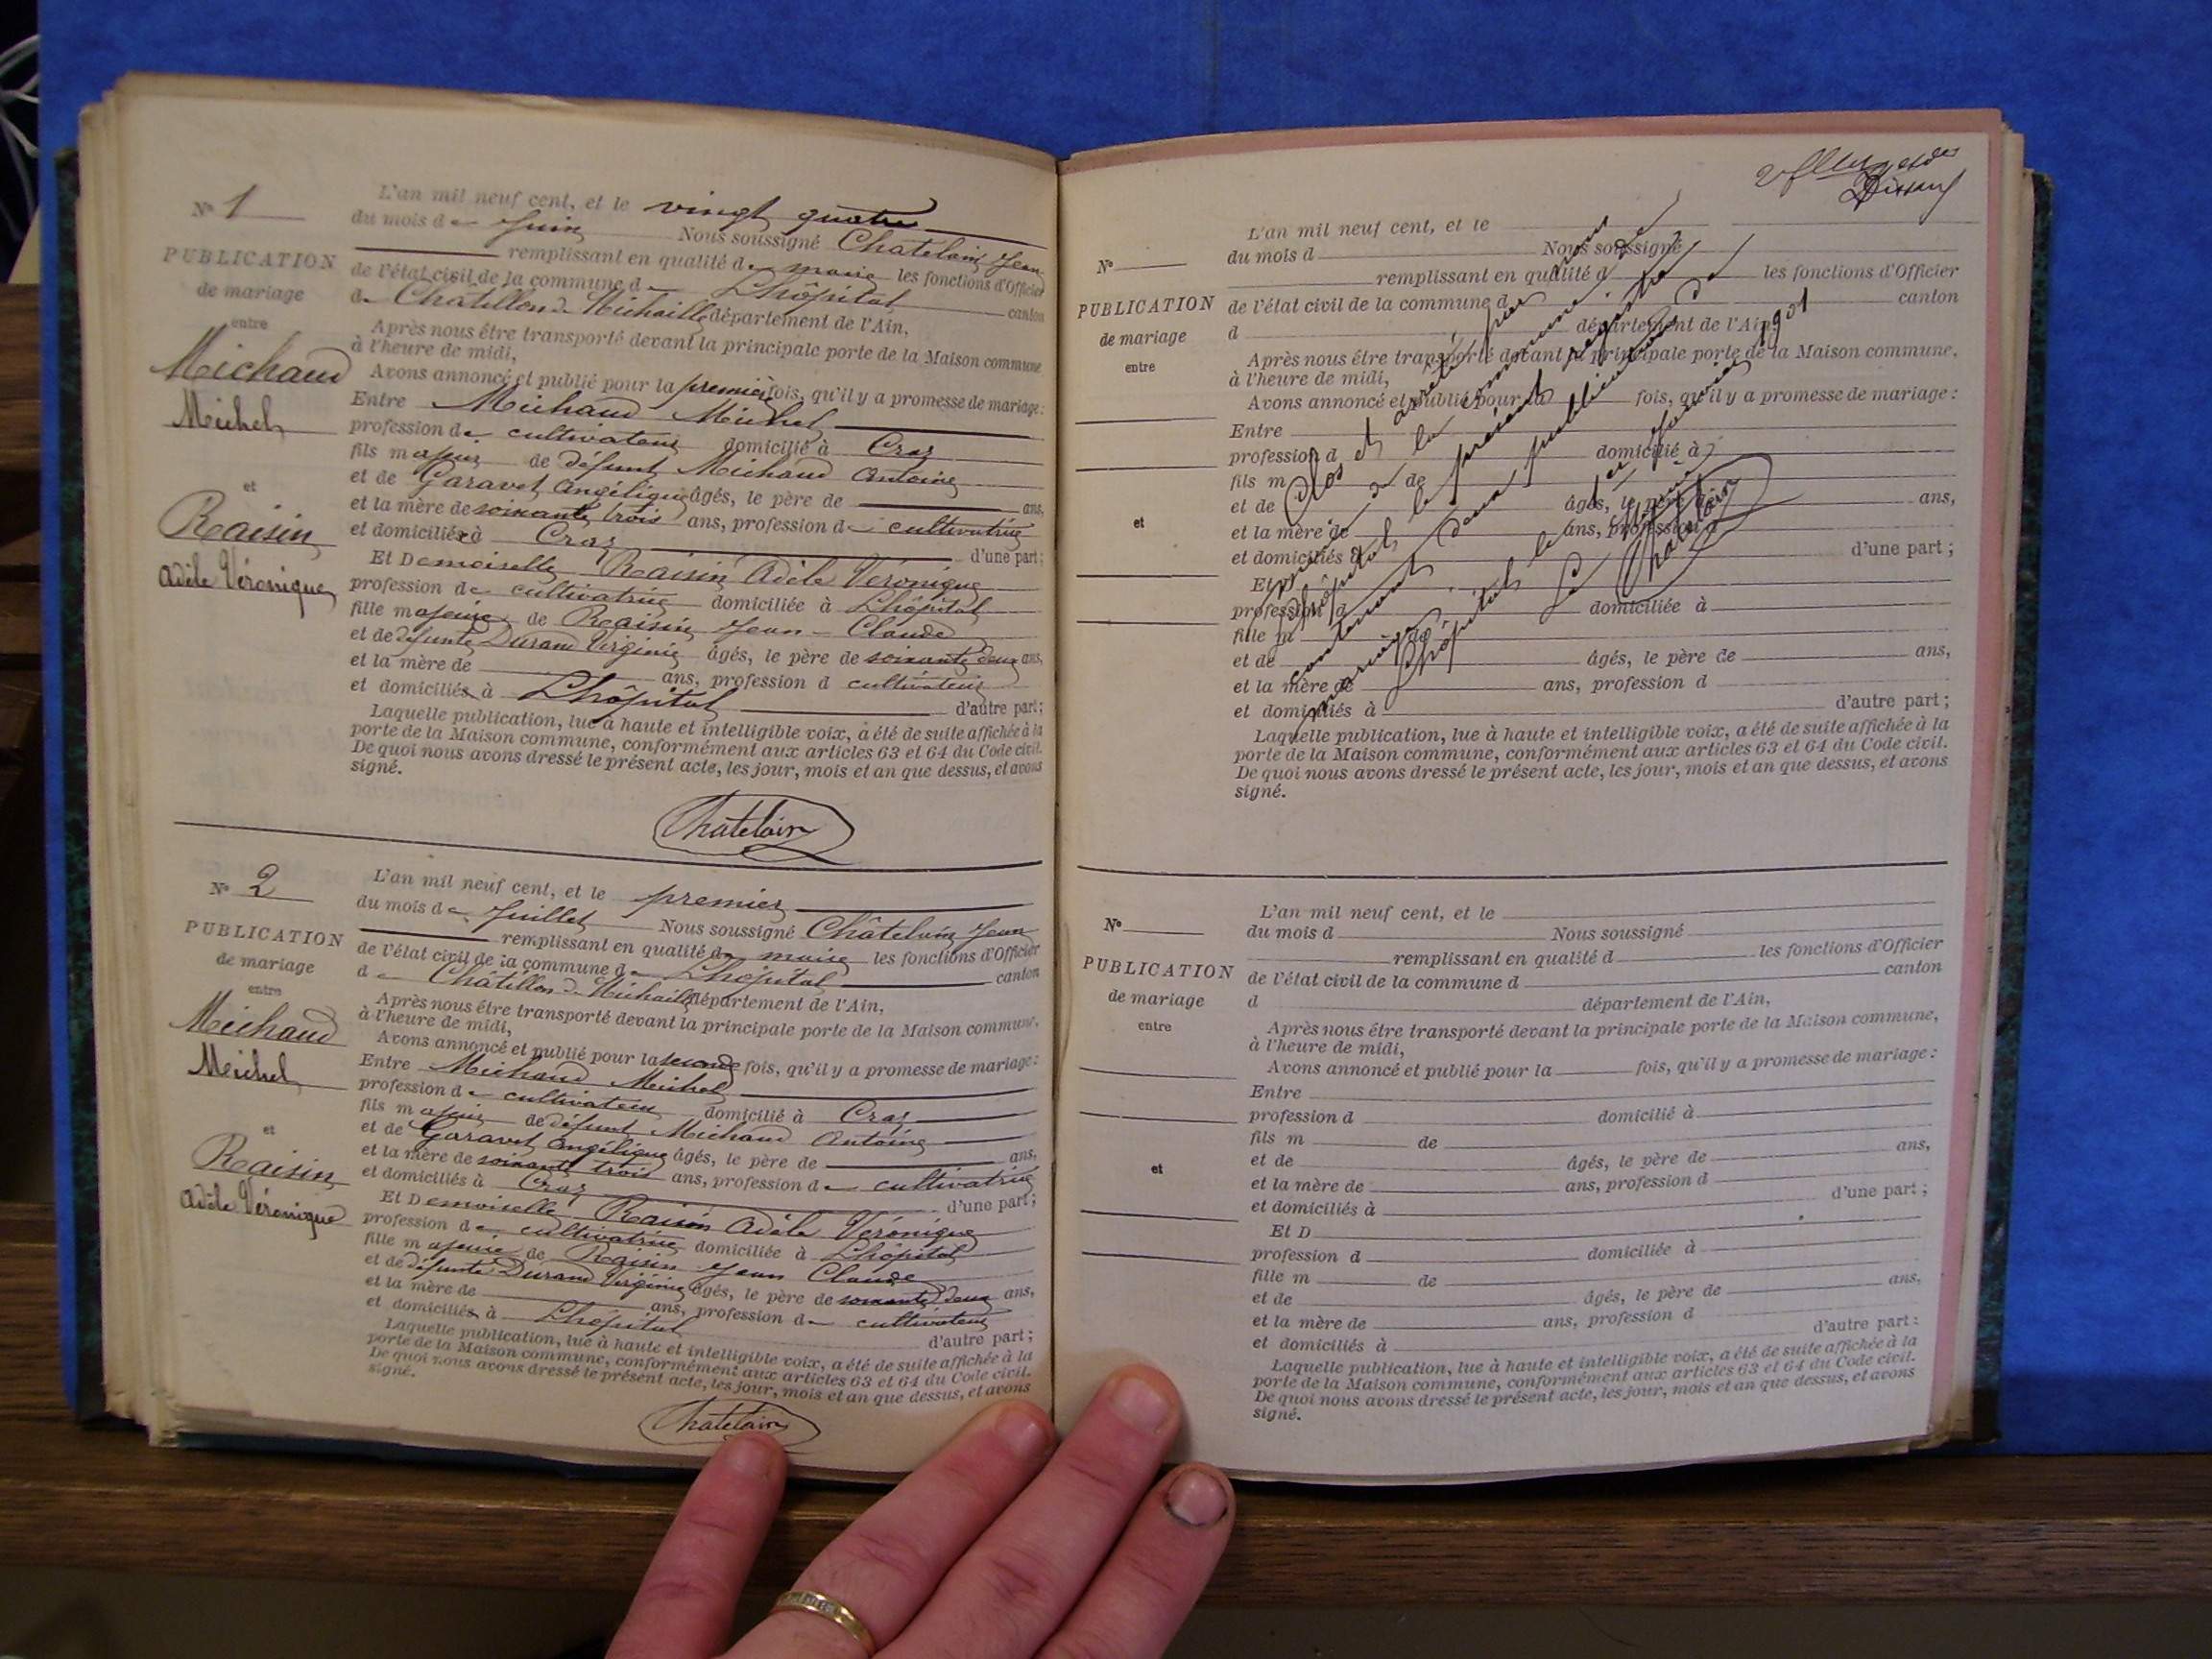 N° 1
PUBLICATION
de mariage
entre
Michaud
Michel
et
Raisin
Adèle Véronique
L'an mil neuf cent, et le vingt quatre
du mois de Juin Nous soussigné Chatelain Jean
remplissant en qualité de maire les fonctions d'Officier
de l'état civil de la commune de Lhôpital canton
de Châtillon de Michaille département de l'Ain,
Après nous être transporté devant la principale porte de la Maison commune
à l'heure de midi,
Avons annoncé et publié pour la première fois, qu'il y a promesse de mariage :
Entre Michaud Michel
profession de cultivateur domicilié à Craz
fils majeur de défunt Michaud Antoine
et de Garavet Angélique âgés, le père de ans,
et la mère de soixante trois ans, profession de cultivatrice
et domiciliée à Craz d'une part ;
Et Demoiselle Raisin Adèle Véronique
profession de cultivatrice domiciliée à Lhôpital
fille majeure de Raisin Jean-Claude
et de défunte Durand Virginie âgés, le père de soixante deux ans,
et la mère de ans, profession d cultivateur
et domiciliés à Lhôpital d'autre part ;
Laquelle publication, lue à haute et intelligible voix, a été de suite affichée à la
porte de la Maison commune, conformément aux articles 63 et 64 du Code civil.
De quoi nous avons dressé le présent acte, les jour, mois et an que dessus, et avons
signé.
Chatelain
N° 2
PUBLICATION
de mariage
entre
Michaud
Michel
et
Raisin
Adèle Véronique
L'an mil neuf cent, et le premier
du mois de Juillet Nous soussigné Châtelain Jean
remplissant en qualité de maire les fonctions d'Officier
de l'état civil de la commune de Lhôpital canton
de Châtillon de Michaille département de l'Ain,
Après nous être transporté devant la principale porte de la Maison commune,
à l'heure de midi,
Avons annoncé et publié pour la seconde fois, qu'il y a promesse de mariage :
Entre Michaud Michel
profession de cultivateur domicilié à Craz
fils majeur de défunt Michaud Antoine
et de Garavet Angélique âgés, le père de ans,
et la mère de soixante trois ans, profession de cultivatrice
et domiciliés à Craz d'une part ;
Et Demoiselle Raisin Adèle Véronique
profession de cultivatrice domiciliée à Lhôpital
fille majeure de Raisin Jean Claude
et de défunte Durand Virginie âgés, le père de soixante deux ans,
et la mère de ans, profession de cultivateur
et domiciliés à Lhôpital d'autre part ;
Laquelle publication, lue à haute et intelligible voix, a été de suite affichée à la
porte de la Maison commune, conformément aux articles 63 et 64 du Code civil.
De quoi nous avons dressé le présent acte, les jour, mois et an que dessus, et avons
signé.
Chatelain
N°
PUBLICATION
de mariage
entre
et
L'an mil neuf cent, et le
du mois d Nous soussigné
remplissant en qualité d les fonctions d'Officier
de l'état civil de la commune d canton
d département de l'Ain,
Après nous être transporté devant la principale porte de la Maison commune,
à l'heure de midi,
Avons annoncé et publié pour la fois, qu'il y a promesse de mariage :
Entre
profession d domicilié à
fils m de
et de âgés, le père de ans,
et la mère de ans, profession d
et domiciliés à d'une part ;
Et D
profession d domiciliée à
fille m de
et de âgés, le père de ans,
et la mère de ans, profession d
et domiciliés à d'autre part ;
Laquelle publication, lue à haute et intelligible voix, a été de suite affichée à la
porte de la Maison commune, conformément aux articles 63 et 64 du Code civil.
De quoi nous avons dressé le présent acte, les jour, mois et an que dessus, et avons
signé.
Clos et arrêté par nous
maire de la commune de
Lhôpital le présent registre
contenant deux publications de
mariage
Lhôpital le 1er Janvier 1901
Le Maire
Chatelain
N°
PUBLICATION
de mariage
entre
et
L'an mil neuf cent, et le
du mois d Nous soussigné
remplissant en qualité d les fonctions d'Officier
de l'état civil de la commune d canton
d département de l'Ain,
Après nous être transporté devant la principale porte de la Maison commune,
à l'heure de midi,
Avons annoncé et publié pour la fois, qu'il y a promesse de mariage :
Entre
profession d domicilié à
fils m de
et de âgés, le père de ans,
et la mère de ans, profession d
et domiciliés à d'une part ;
Et D
profession d domiciliée à
fille m de
et de âgés, le père de ans,
et la mère de ans, profession d
et domiciliés à d'autre part ;
Laquelle publication, lue à haute et intelligible voix, a été de suite affichée à la
porte de la Maison commune, conformément aux articles 63 et 64 du Code civil.
De quoi nous avons dressé le présent acte, les jour, mois et an que dessus, et avons
signé.